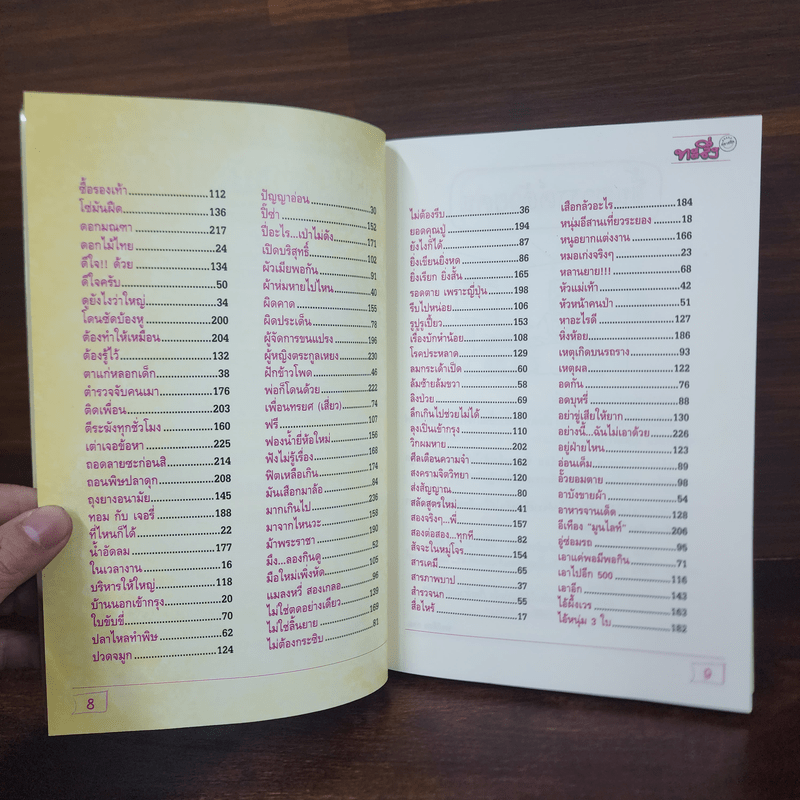 ซื้อรองเท้า 112
โซ่มันฝืด 136
ดอกมณฑา 217
ดอกไม้ไทย 24
ดีใจ!! ด้วย 134
ดีใจครับ 50
ดูยังไงว่าใหญ่ 34
โดนซัดบ้องหู 200
ต้องทำให้เหมือน 204
ต้องรู้ไว้ 132
ตาแก่หลอกเด็ก 38
ตำรวจจับคนเมา 176
ติดเพื่อน 203
ตีระฆังทุกชั่วโมง 160
เต่าเจอข้อหา 225
ถอดลายซะก่อนสิ 214
ถอนพิษปลาดุก 208
ถุงยางอนามัย 145
ทอม กับ เจอรี่ 188
ที่ไหนก็ได้ 22
น้ำอัดลม 177
ในเวลางาน 16
บริหารให้ใหญ่ 118
บ้านนอกเข้ากรุง 20
ใบขับขี่ 70
ปลาไหลทำพิษ 62
ปวดจมูก 124
ปัญญาอ่อน 30
ปิ๊ซ่า 152
ปี่อะไร...เป่าไม่ดัง 171
เปิดบริสุทธิ์ 102
ผัวเมียพอกัน 91
ผ้าห่มหายไปไหน 40
ผิดคาด 155
ผิดประเด็น 78
ผู้จัดการขนแปรง 182
ผู้หญิงตระกูลเหยง 230
ฝักข้าวโพด 46
พ่อก็โดนด้วย 222
เพื่อนทรยศ (เสียว) 74
ฟรี 107
ฟองน้ำยี่ห้อใหม่ 156
ฟังไม่รู้เรื่อง 184
ฟิตเหลือเกิน 174
มันเสือกมาล้อ 84
มากเกินไป 236
มาจากไหนวะ 128
ม้าพระราชา 190
มึง...ลองกินดู 52
มือใหม่เพิ่งหัด 105
แมลงหวี่ สองเกลอ 96
ไม่ใช่ตดอย่างเดียว 139
ไม่ใช่ลิ้นยาย 169
ไม่ต้องกระซิบ 81
8
ทะลึ่ง
ไม่ต้องรีบ 36
ยอดคุณปู่ 194
ยังไงก็ได้ 87
ยิ่งเขียนยิ่งหด 86
ยิ่งเรียก ยิ่งสั้น 165
รอดตาย เพราะญี่ปุ่น 198
รีบไปหน่อย 106
รูปรูเปี้ยว 153
เรื่องบักหำน้อย 108
โรคประหลาด 129
ลมกระเด้าเปิด 60
ล้มซ้ายล้มขวา 58
ลิงป่วย 69
ลึกเกินไปช่วยไม่ได้ 180
ลุงเป็นเข้ากรุง 110
วิกผมหาย 202
ศีลเตือนความจำ 162
สงครามจิตวิทยา 120
ส่งสัญญาณ 80
สลัดสูตรใหม่ 41
สองจริงๆ...พี่ 157
สองต่อสอง...ทุกที่ 82
สัจจะในหมู่โจร 154
สารเคมี 65
สารภาพบาป 37
สำรวจนก 55
สื่อไหร้ 17
เสือกลัวอะไร 184
หนุ่มอีสานเที่ยวระยอง 18
หนูอยากแต่งงาน 166
หมอเก่งจริงๆ 23
หลานยาย!!! 68
หัวแม่เท้า 42
หัวหน้าคนป่า 51
หาอะไรดี 127
หิ่งห้อย 186
เหตุเกิดบนรถราง 93
เหตุผล 122
อดกัน 76
อดบุหรี่ 88
อย่าขู่เสียให้ยาก 130
อย่างนี้...ฉันไม่เอาด้วย 226
อยู่ฝ่ายไหน 123
อ่อนเค็ม 89
อั้วยอมตาย 98
อาบังขายผ้า 54
อาหารจานเด็ด 128
อีเทือง "มูนไลท์" 206
อู่ซ่อมรถ 95
เอาแค่พอมีพอกิน 71
เอาไปอีก 500 116
เอาอีก 143
ไอ้ผึ้งเวร 163
ไอ้หนุ่ม 3 ใบ 182
9